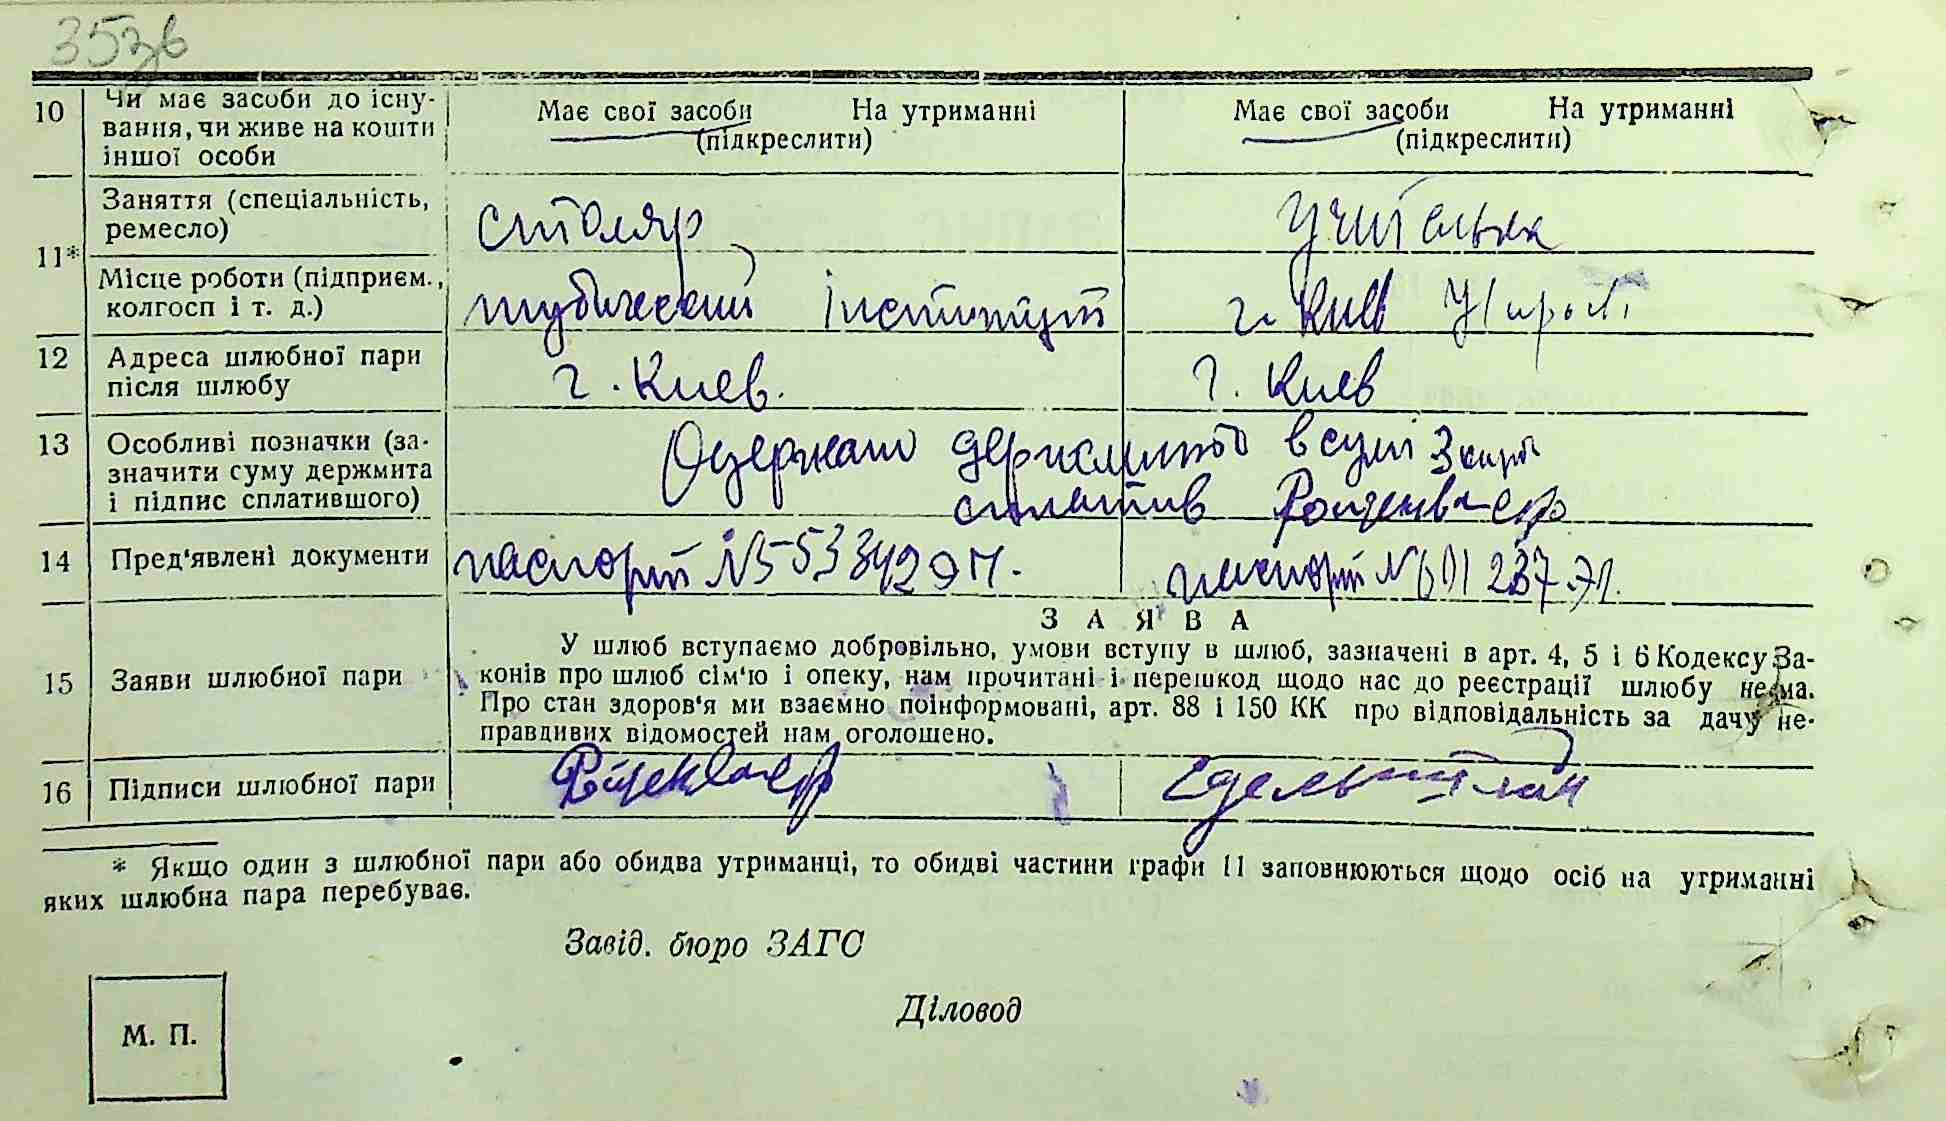 35зв
10 Чи має засоби до існу-
вання, чи живе на кошти
іншої особи
Має свої засоби На утриманні
(підкреслити)
Має свої засоби На утриманні
(підкреслити)
11* Заняття (спеціальність,
ремесло)
столяр
Учителька
Місце роботи (підприєм.,
колгосп і т. д.)
інститут
г. Киев
12 Адреса шлюбної пари
після шлюбу
г. Киев.
г. Киев
13 Особливі позначки (за-
значити суму держмита
і підпис сплатившого)
Одержано держмито в сумі 3 карб
сплатив
14 Пред'явлені документи
паспорт №
паспорт №
З А Я В А
15 Заяви шлюбної пари
У шлюб вступаємо добровільно, умови вступу в шлюб, зазначені в арт. 4, 5 і 6 Кодексу За-
конів про шлюб сім'ю і опеку, нам прочитані і перешкод щодо нас до реєстрації шлюбу нема.
Про стан здоров'я ми взаємно поінформовані, арт. 88 і 150 КК про відповідальність за дачу не-
правдивих відомостей нам оголошено.
16 Підписи шлюбної пари
* Якщо один з шлюбної пари або обидва утриманці, то обидві частини графи 11 заповнюються щодо осіб на утриманні
яких шлюбна пара перебуває.
Завід. бюро ЗАГС
Діловод
М. П.